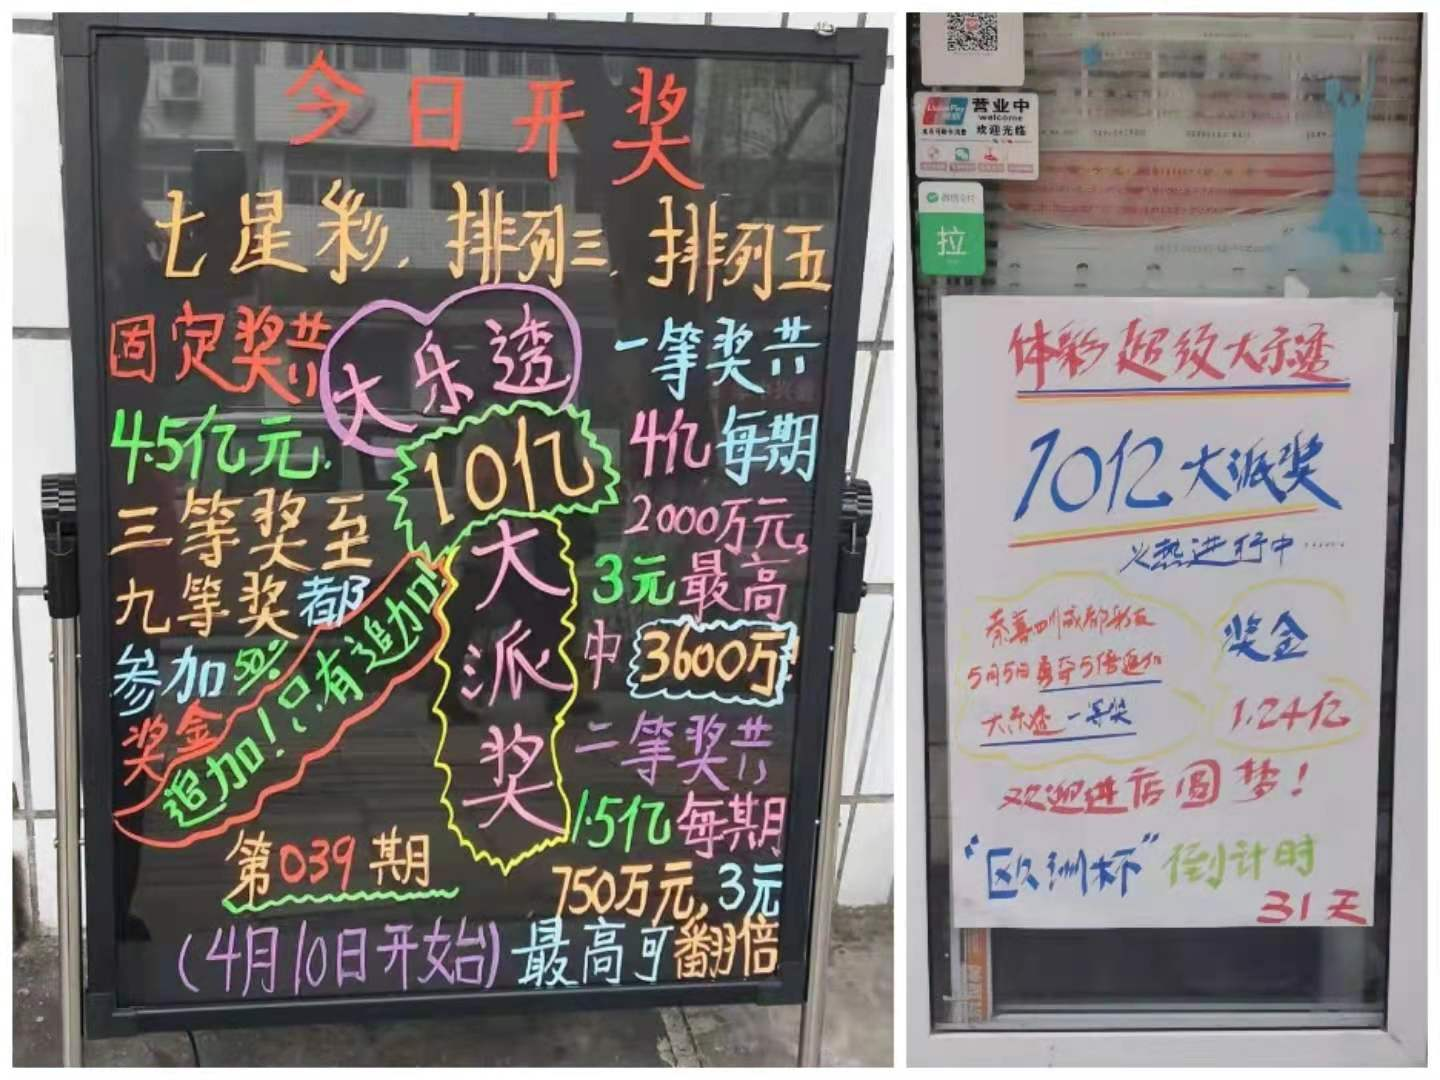 今日开奖
七星彩.排列三.排列五
固定奖共
4.5亿元.
三等奖至
九等奖都
参加50%
奖金
追加!只有追加
大乐透
10亿
大派奖
一等奖共
4亿每期
2000万元,
3元最高
中3600万!
二等奖共
1.5亿每期
750万元,3元
最高可翻倍
第039期
(4月10日开始)
UnionPay
营业中
welcome
欢迎光临
微信支付
拉
体彩超级大乐透
10亿大派奖
火热进行中……
恭喜四川成都彩友
5月5日勇夺5倍追加
大乐透一等奖
奖金
1.24亿
欢迎进店圆梦!
“欧洲杯”倒计时
31天